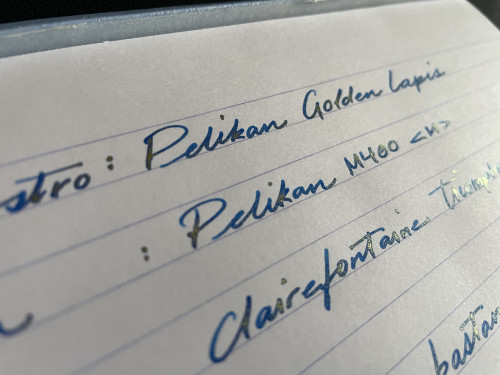 stro: Pelikan Golden Lapis
: Pelikan M400 <M>
Clairefontaine
bastan